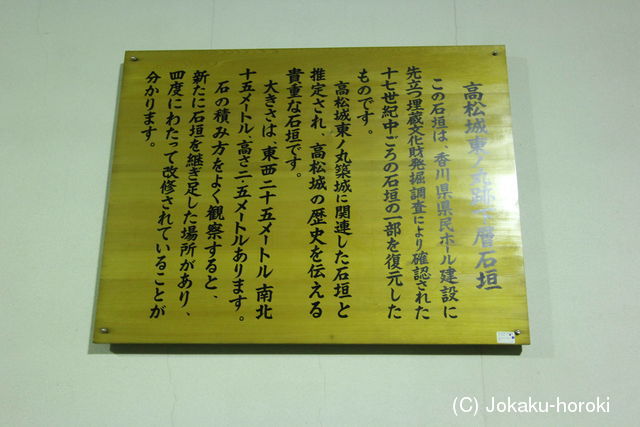 高松城東ノ丸跡下層石垣
この石垣は、香川県県民ホール建設に
先立つ埋蔵文化財発掘調査により確認された
十七世紀中ごろの石垣の一部を復元した
ものです。
高松城東ノ丸築城に関連した石垣と
推定され、高松城の歴史を伝える
貴重な石垣です。
大きさは、東西二十五メートル、南北
十五メートル、高さ二・五メートルあります。
石の積み方をよく観察すると、
新たに石垣を継ぎ足した場所があり、
四度にわたって改修されていることが
分かります。
(C) Jokaku-horoki